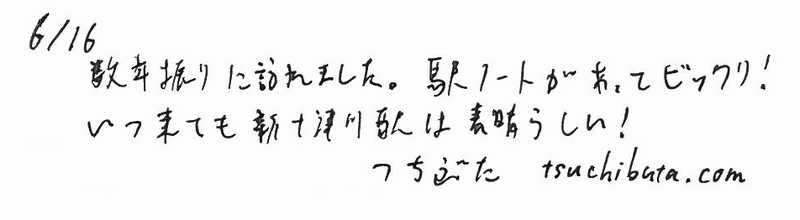 6/16
数年振りに訪れました。駅ノートがあってビックリ!
いつ来ても新十津川駅は素晴らしい!
つちぶた tsuchibuta.com